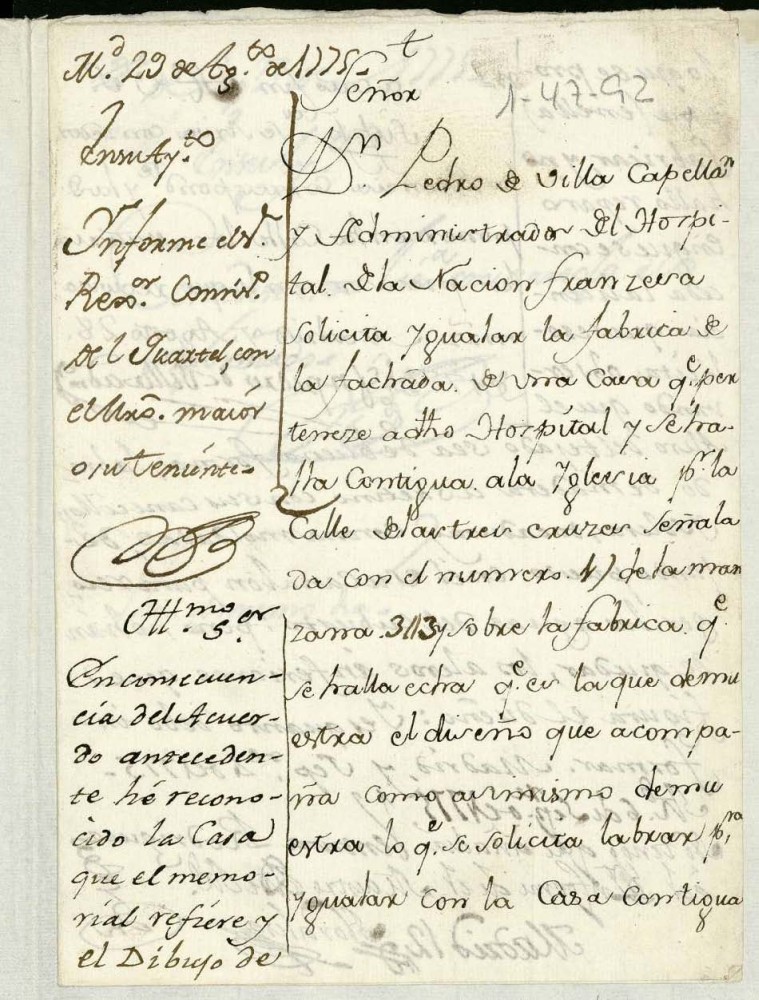 M.d 29 de Ag.to de 1775.
En su Ay.to
Ynforme el S.r
Rexor. Comis.o
del Quartel, con
el Mro. maiór
o su tenínte.
Yll.mo S.or
En consecuen-
cia del Acuer-
do anteceden-
te hé recono-
cido la Casa
que el memo-
rial refiere y
el Dibujo de
†
Señor
1-47-92
D.n Pedro de Villa Capellan
y Administrador del Hospi-
tal de la Nacion franzesa
solicita Ygualar la fabrica de
la fachada de una Casa q.e per
teneze a dho Hospital y se ha-
lla Contigua a la Yglesia p.r la
Calle de las tres cruzes Señala
da con el numero 1) de la man
zana 313 y sobre la fabrica q.e
se halla echa q.e es la que demu
estra el diseño que acompa-
ña como asimismo demu
estra lo q.e se solicita labrar p.ra
Ygualar con la Casa Contigua